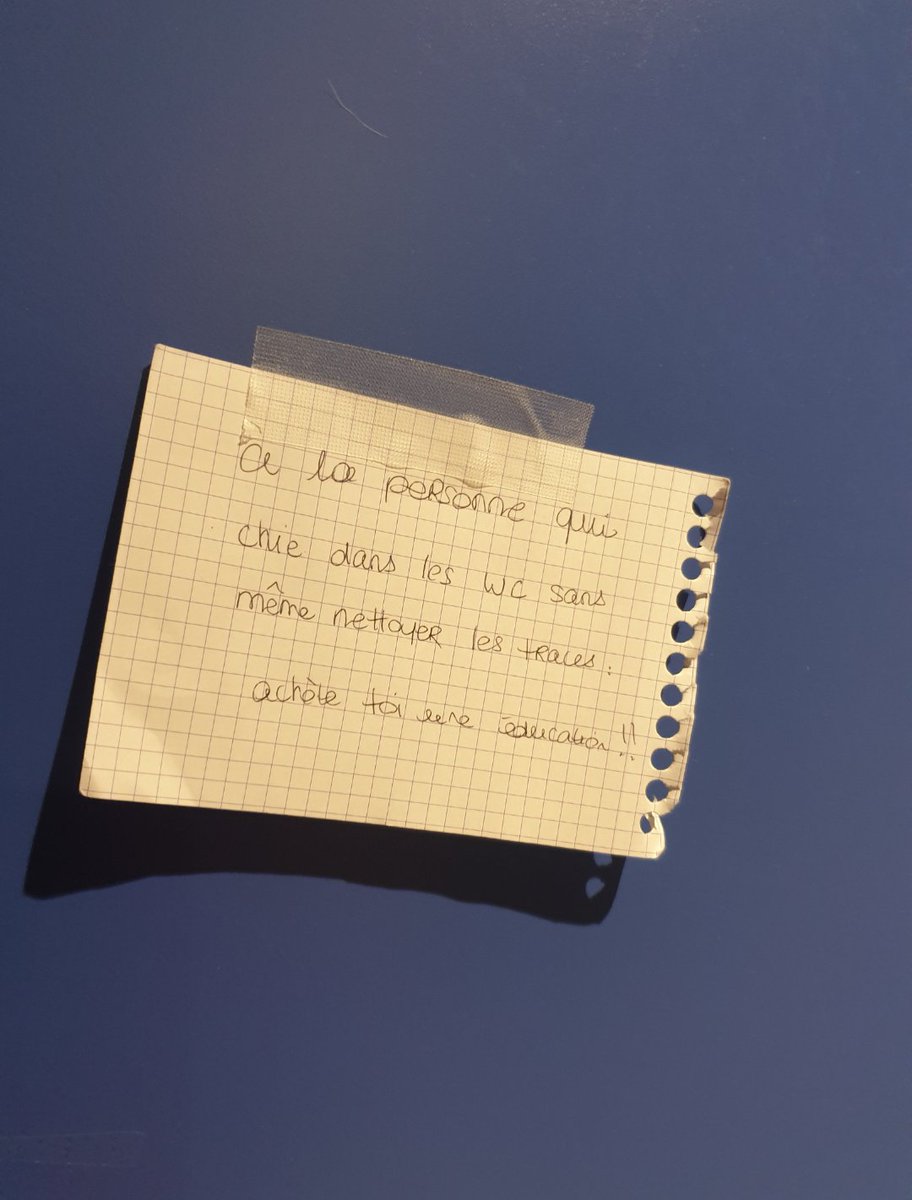 A la personne qui
chie dans les WC sans
même nettoyer les traces.
achète toi une éducation !!